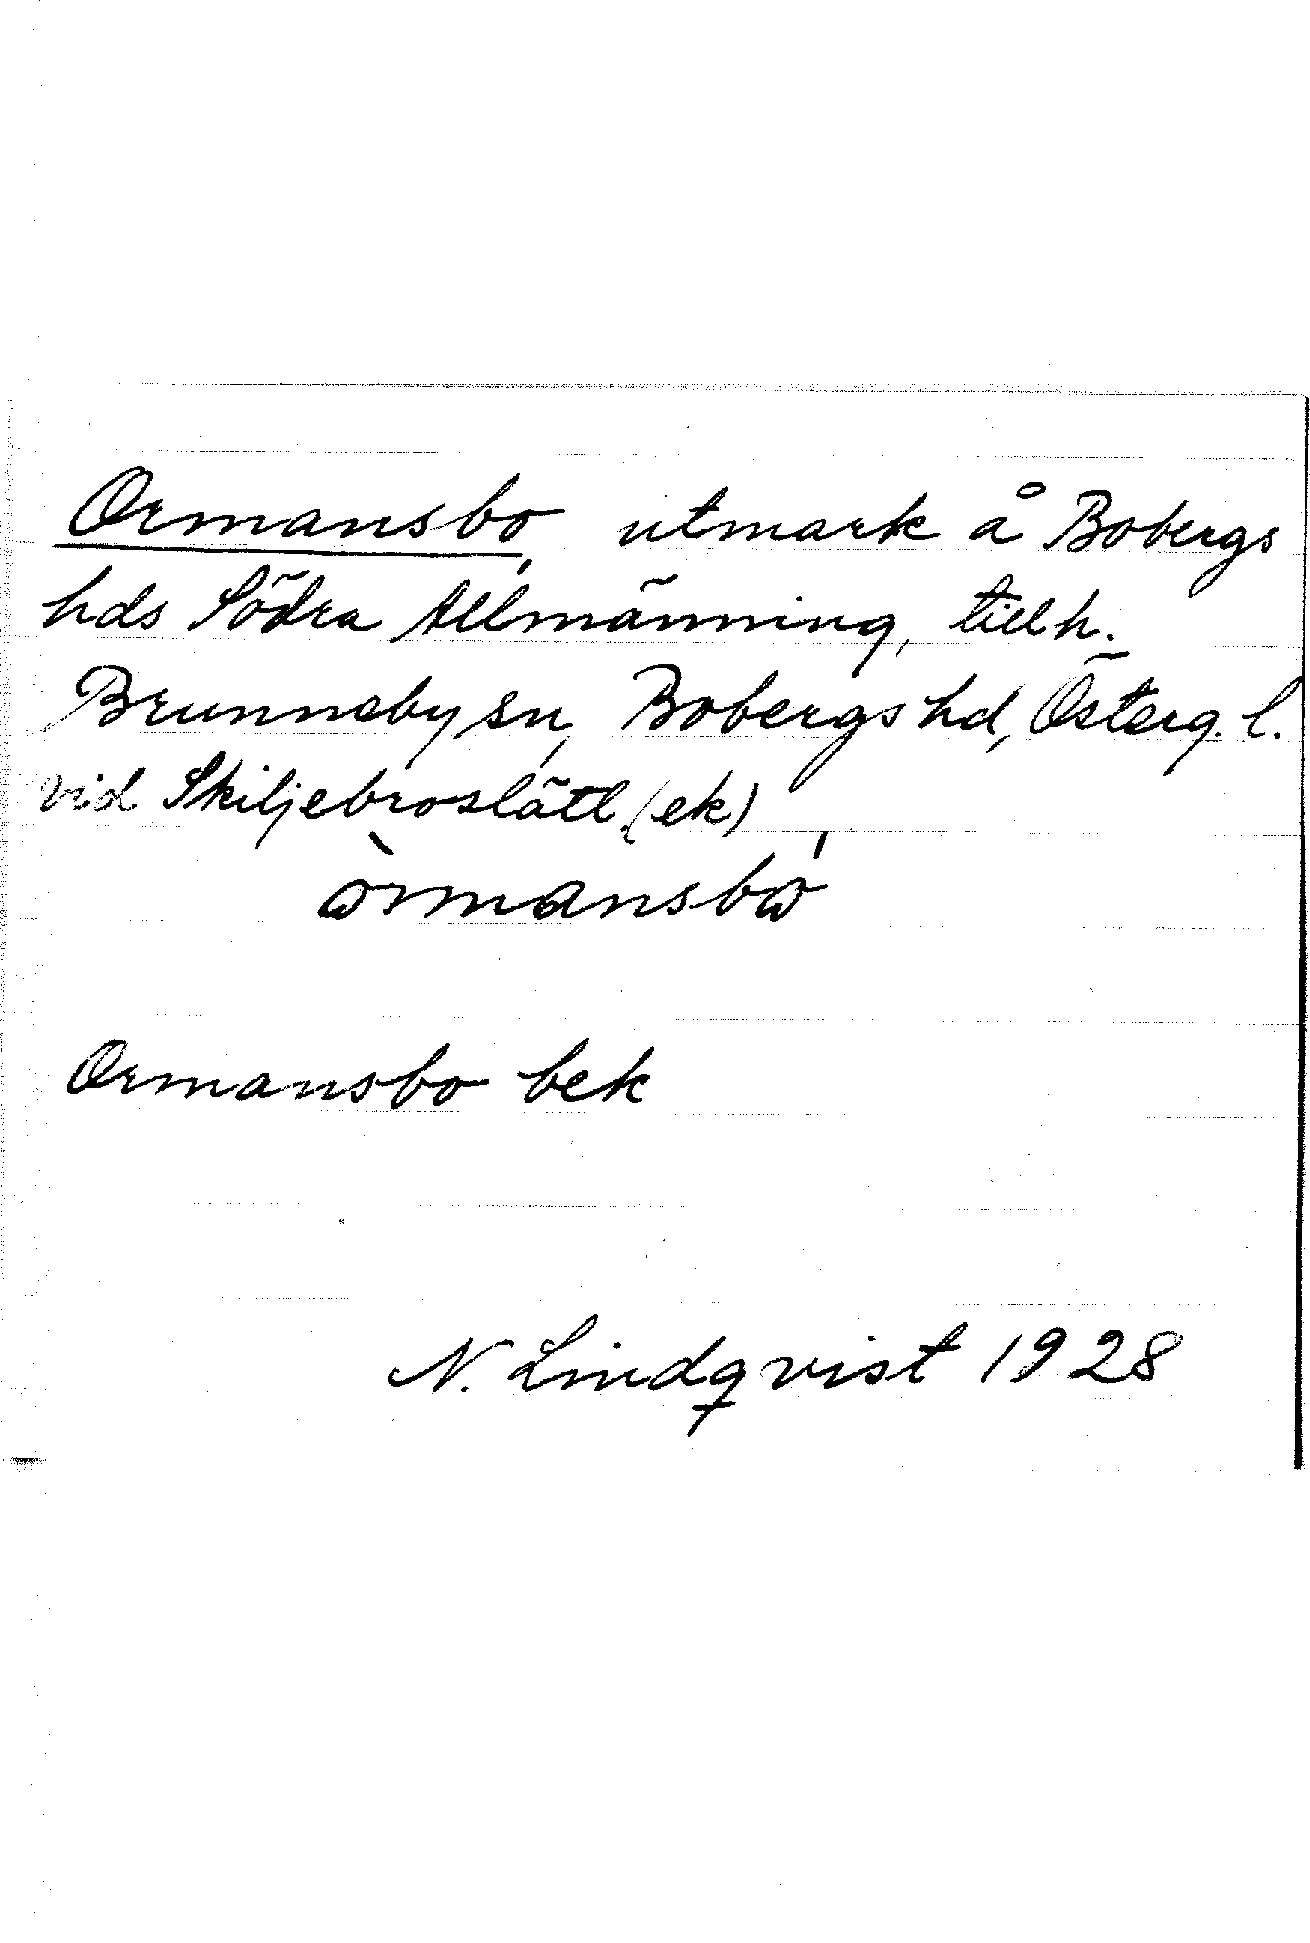 Ormansbo, utmark å Bobergs
hds Södra Allmänning, tillh.
Brunneby sn, Bobergs hd, Österg. l.
vid Skiljebroslätt (ek)
òrmansbó
Ormansbo bek
N. Lindqvist 1928